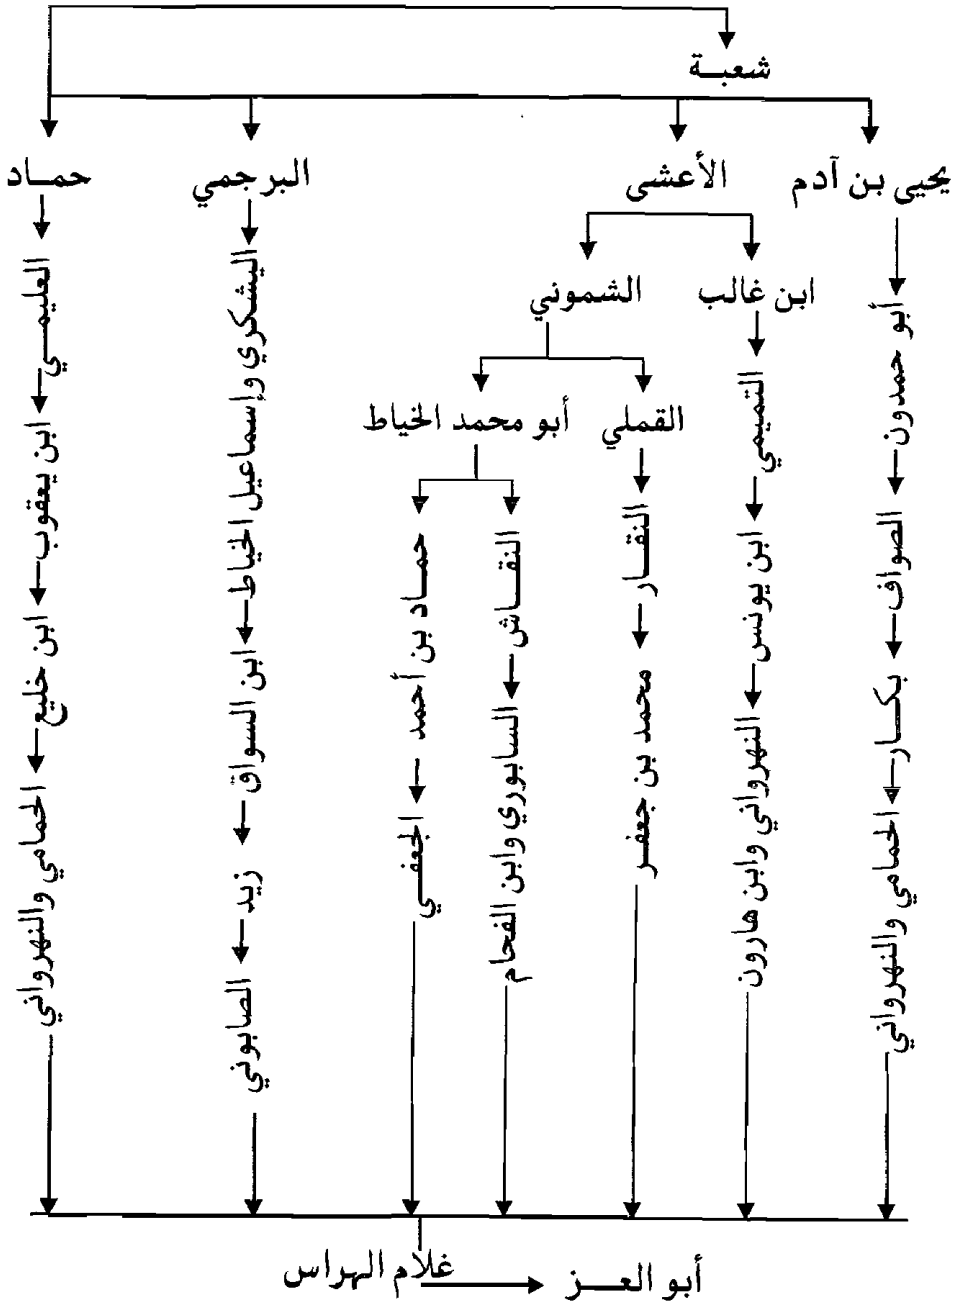 شعبــة
يحيى بن آدم
الأعشى
البرجمي
حمــاد
ابن غالب
الشموني
القملي
أبو محمد الخياط
أبو حمدون
الصواف
بكــار
الحمامي والنهرواني
التميمي
ابن يونس
النهرواني وابن هارون
النقــار
محمد بن جعفر
النقــاش
السابوري وابن الفحام
حمــاد بن أحمد
الجعفــي
اليشكري وإسماعيل الخياط
ابن السواق
زيد
الصابوني
العليمــي
ابن يعقوب
ابن خليع
الحمامي والنهرواني
غلام الهراس
أبو العــز